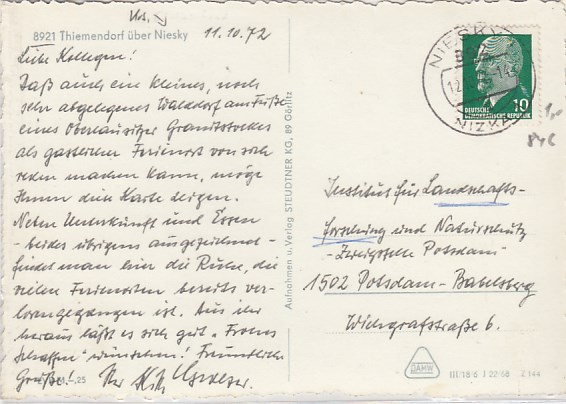 8921 Thiemendorf über Niesky
11.10.72
Liebe Kollegen!
Daß auch ein kleines, noch
sehr abgelegenes Walddorf am Fuße
eines Oberlausitzer Granitstockes
als gastlicher Ferienort von sich
reden machen kann, möge
Ihnen diese Karte zeigen.
Neben Unterkunft und Essen
- beides übrigens ausgezeichnet -
findet man hier die Ruhe, die
vielen Ferienorten bereits ver-
lorengegangen ist. Aus ihr
heraus läßt es sich gut "Frohes
Schaffen" wünschen! Freundliche
Grüße! Ihr
Aufnahmen u. Verlag STEUDTNER KG, 89 Görlitz
NIESKY
12
DEUTSCHE
DEMOKRATISCHE REPUBLIK
10
1,-
Institut für Landschafts-
forschung und Naturschutz
- Zweigstelle Potsdam -
1502 Potsdam-Babelsberg
Wichgrafstraße 6.
DAMW
III/18/6 J 22/68 Z 144